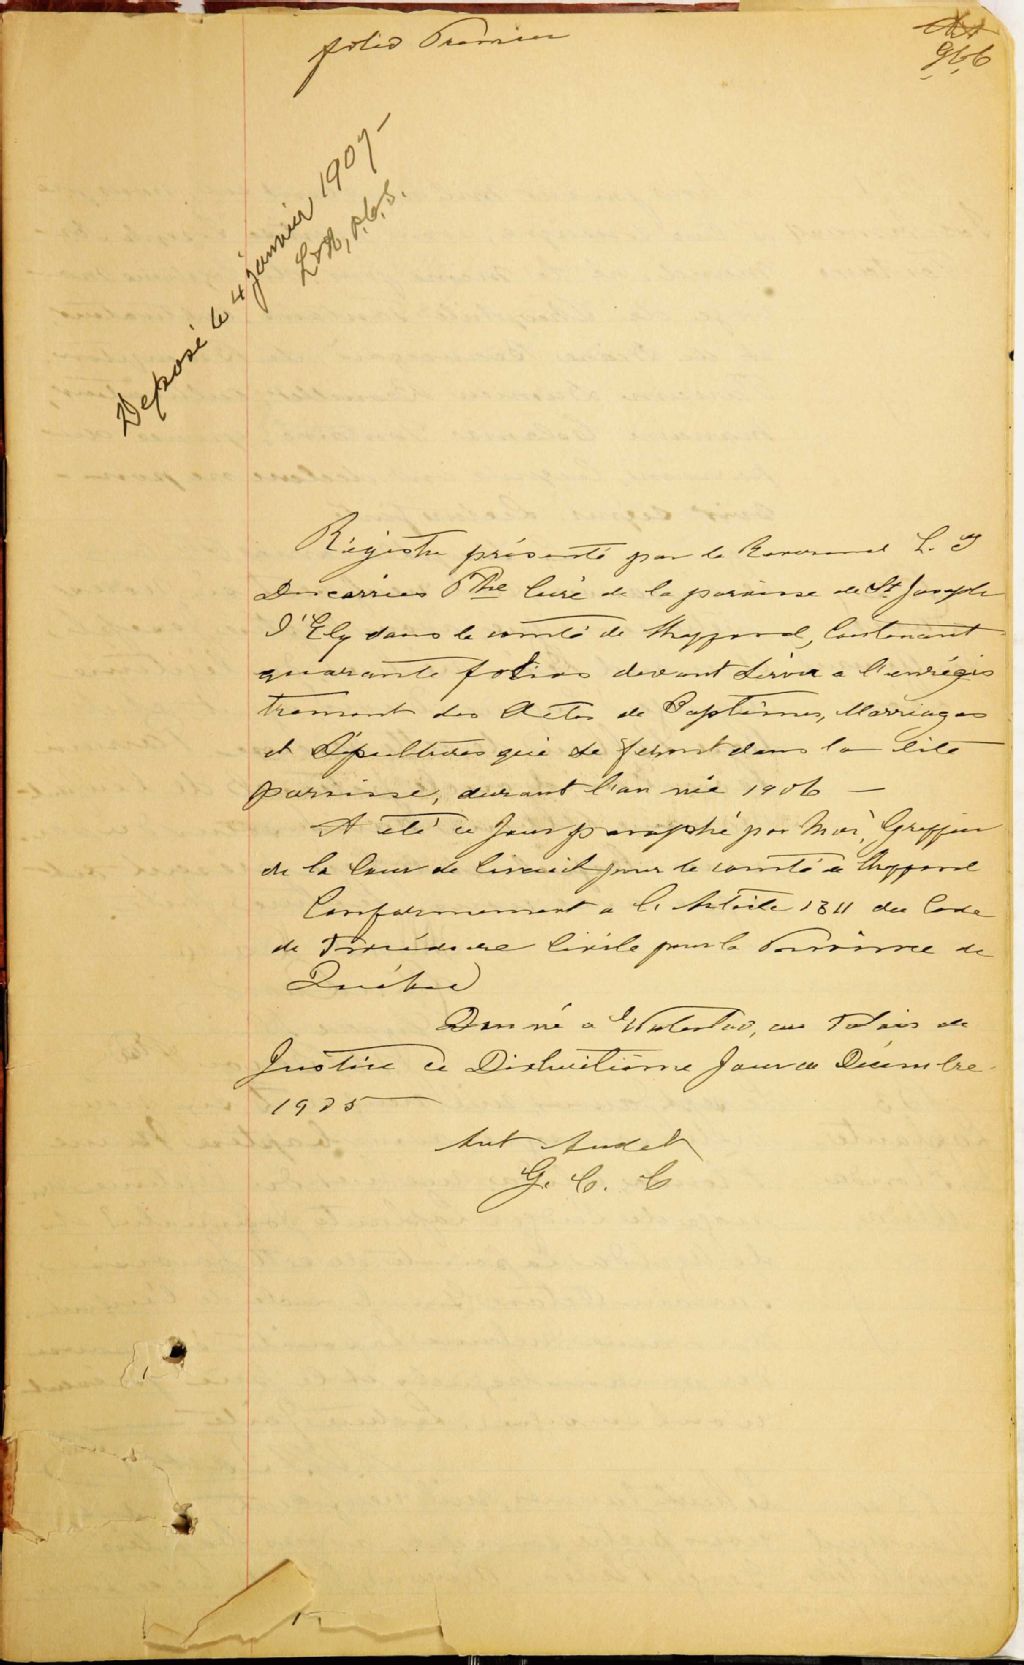 folio Premier
G.C.C
Déposé le 4 janvier 1907 –
P.C.S.
Régistre présenté par le Reverend L. J
Descarries Ptre Curé de la paroisse de St Joseph
d'Ely dans le comté de Shefford, Contenant
quarante folios devant servir a l'enrégis
trement des Actes de Baptêmes, Marriages
et Sépultures qui se feront dans la dite
paroisse, durant l'an née 1906 —
A été ce Jour paraphé par Moi, Greffier
de la Cour de Circuit pour le comté de Shefford
Conformement a l'Article 1311 du Code
de Procédure Civile pour la Province de
Québec
Don né a Waterloo, au Palais de
Justice ce Dixhuitième Jour de Décembre
1905 —
Ant Audet
G. C. C